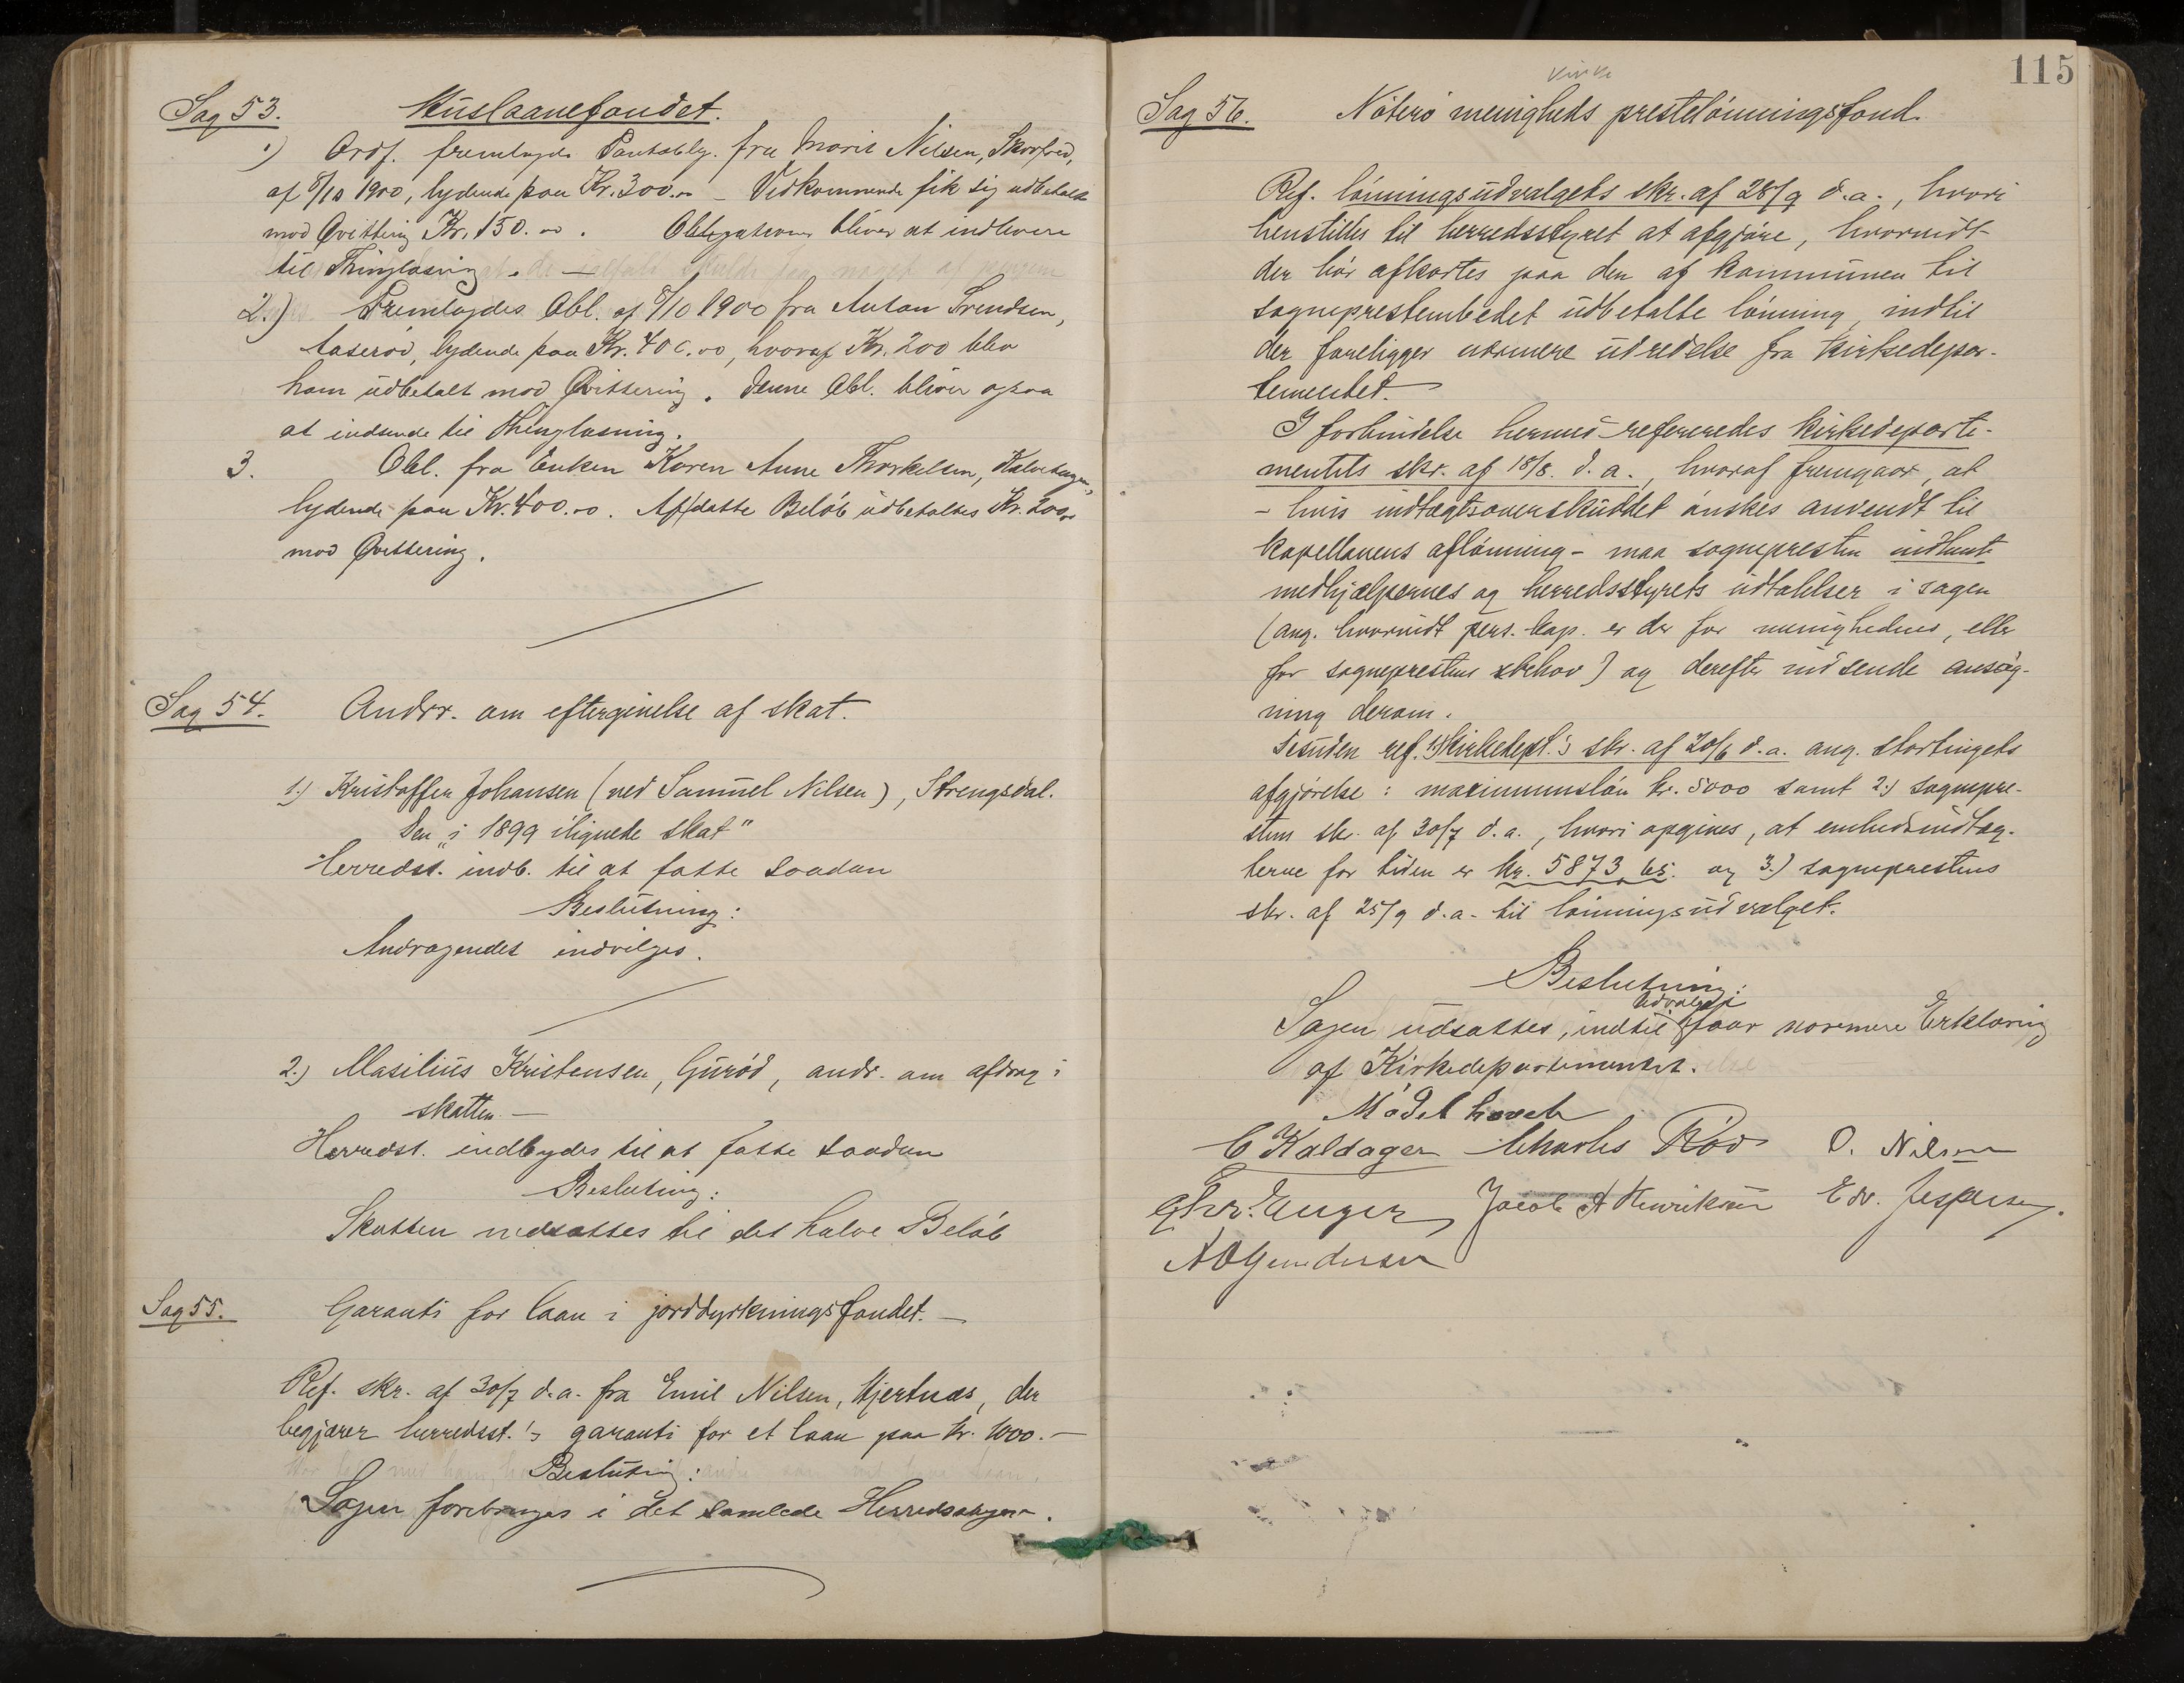 Sag 53. Huslaanefondet.
1) Ordf. fremlagde Pantobly. fra Marit Nilsen,
af 8/10 1900, lydende paa Kr. 300.00 – Vedkommende fik sig udbetalt
mod Qvittering Kr. 150.00. Obligationen bliver at indlevere
til Thinglæsning. —
2.) Fremlagdes Obl. af 8/10 1900 fra Anton Svendsen,
Aaserød, lydende paa Kr. 400.00, hvoraf Kr. 200 blev
ham udbetalt mod Qvittering. Denne Obl. bliver ogsaa
at indsende til Thinglæsning.
3. Obl. fra Enken Karen Anne Thorkelsen,
lydende paa Kr. 400.00. Af dette Beløb udbetaltes Kr. 200
mod Qvittering.
Sag 54. Andr. om eftergivelse af skat.
1.) Kristoffer Johansen (ved Samuel Nilsen), Strengsdal.
Den „i 1899 ilignede skat"
Herredst. indb. til at fatte saadan
Beslutning:
Andragendet indvilges.
2.) Masilius Kristensen, Gurød, andr. om afdrag i
skatten –
Herredst. indbydes til at fatte saadan
Beslutning:
Skatten nedsattes til det halve Beløb
Sag 55. Garanti for laan i jorddyrkningsfondet. —
Ref. skr. af 30/7 d.a. fra Emil Nilsen, Hjertnæs, der
begjærer herredsst.'s garanti for et laan paa kr. 1000. —
Beslutning:
Sagen forebringes i det samlede Herredsstyre.
115
kirke
Sag 56. Nøterø menigheds prestelønningsfond.
Ref. lønningsudvalgets skr. af 28/9 d.a., hvori
henstilles til herredsstyret at afgjøre, hvorvidt
der bør afkortes paa den af kommunen til
sogneprestembedet udbetalte lønning, indtil
der foreligger nærmere udredelse fra kirkedepar-
tementet.
I forbindelse hermed refereredes kirkedeparte-
mentets skr. af 18/8. d.a., hvoraf fremgaar, at
– hvis indtægtsoverskuddet ønskes anvendt til
kapellanens aflønning – maa sognepresten indhente
medhjælpernes og herredsstyrets udtalelser i sagen
(ang. hvorvidt pers. kap. er der for menighedens, eller
for sogneprestens behov) og derefter indsende ansøg-
ning derom.
Desuden ref. 1) kirkedept.'s skr. af 20/6 d.a. ang. stortingets
afgjørelse: maximumsløn kr. 5000 samt 2.) sognepre-
stens skr. af 30/7 d.a., hvori opgives, at embedsindtæg-
terne for tiden er kr. 5873,65. og 3.) sogneprestens
skr. af 25/9 d.a. til lønningsudvalget.
Beslutning:
Sagen udsattes, indtil Udvalget faar nærmere Erklæring
af Kirkedepartementet.
Mødet hævet
C Kaldager Charles Røv O. Nilsen
Chr. Enger Jacob A Henriksen Edv. Jespersen.
A O Gundersen